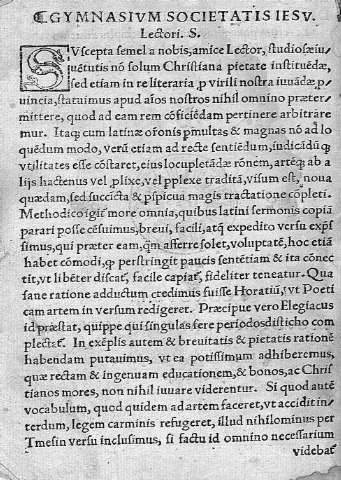 ☙GYMNASIVM SOCIETATIS IESV.
Lectori. S.
SVscepta semel a nobis, amice Lector, studiosæ iu
uētutis nō solum Christiana pietate instituēdæ,
sed etiam in re literaria p virili nostra iuuādæ p
uincia, statuimus apud aīos nostros nihil omnino præter
mittere, quod ad eam rem cōficiēdam pertinere arbitrare
mur. Itaq; cum latinæ oŕonis pmultas & magnas nō ad lo
quēdum modo, verū etiam ad recte sentiēdum, iudicādū q;
vtilitates esse cōstaret, eius locupletādæ rōnem, artēq; ab a
lijs hactenus vel plixe, vel pplexe traditā, visum est, noua
quædam, sed succīcta & pspicua magis tractatione cōpleti.
Methodico igit more omnia, quibus latini sermonis copiā
parari posse cēsuimus, breui, facili, atq; expedito versu expſ
simus, qui præter eam, qm afferre solet, voluptatē, hoc etiā
habet cōmodi, q perstringit paucis sentētiam & ita cōnec
tit, vt & libēter discat, facile capiat, & fideliter teneatur. Qua
sane ratione adductum credimus fuisse Horatiū, vt Poeti
cam artem in versum redigeret. Præcipue vero Elegiacus
id præstat, quippe qui singulas fere periodos disticho com
plectat. In exēplis autem & breuitatis & pietatis rationē
habendam putauimus, vt ea potissimum adhiberemus,
quæ rectam & ingenuam educationem, & bonos, ac Chris
tianos mores, non nihil iuuare viderentur. Si quod autē
vocabulum, quod quidem ad artem faceret, vt accidit in
terdum, legem carminis refugeret, illud nihilominus per
Tmesin versu inclusimus, si factu id omnino necessarium
videbat